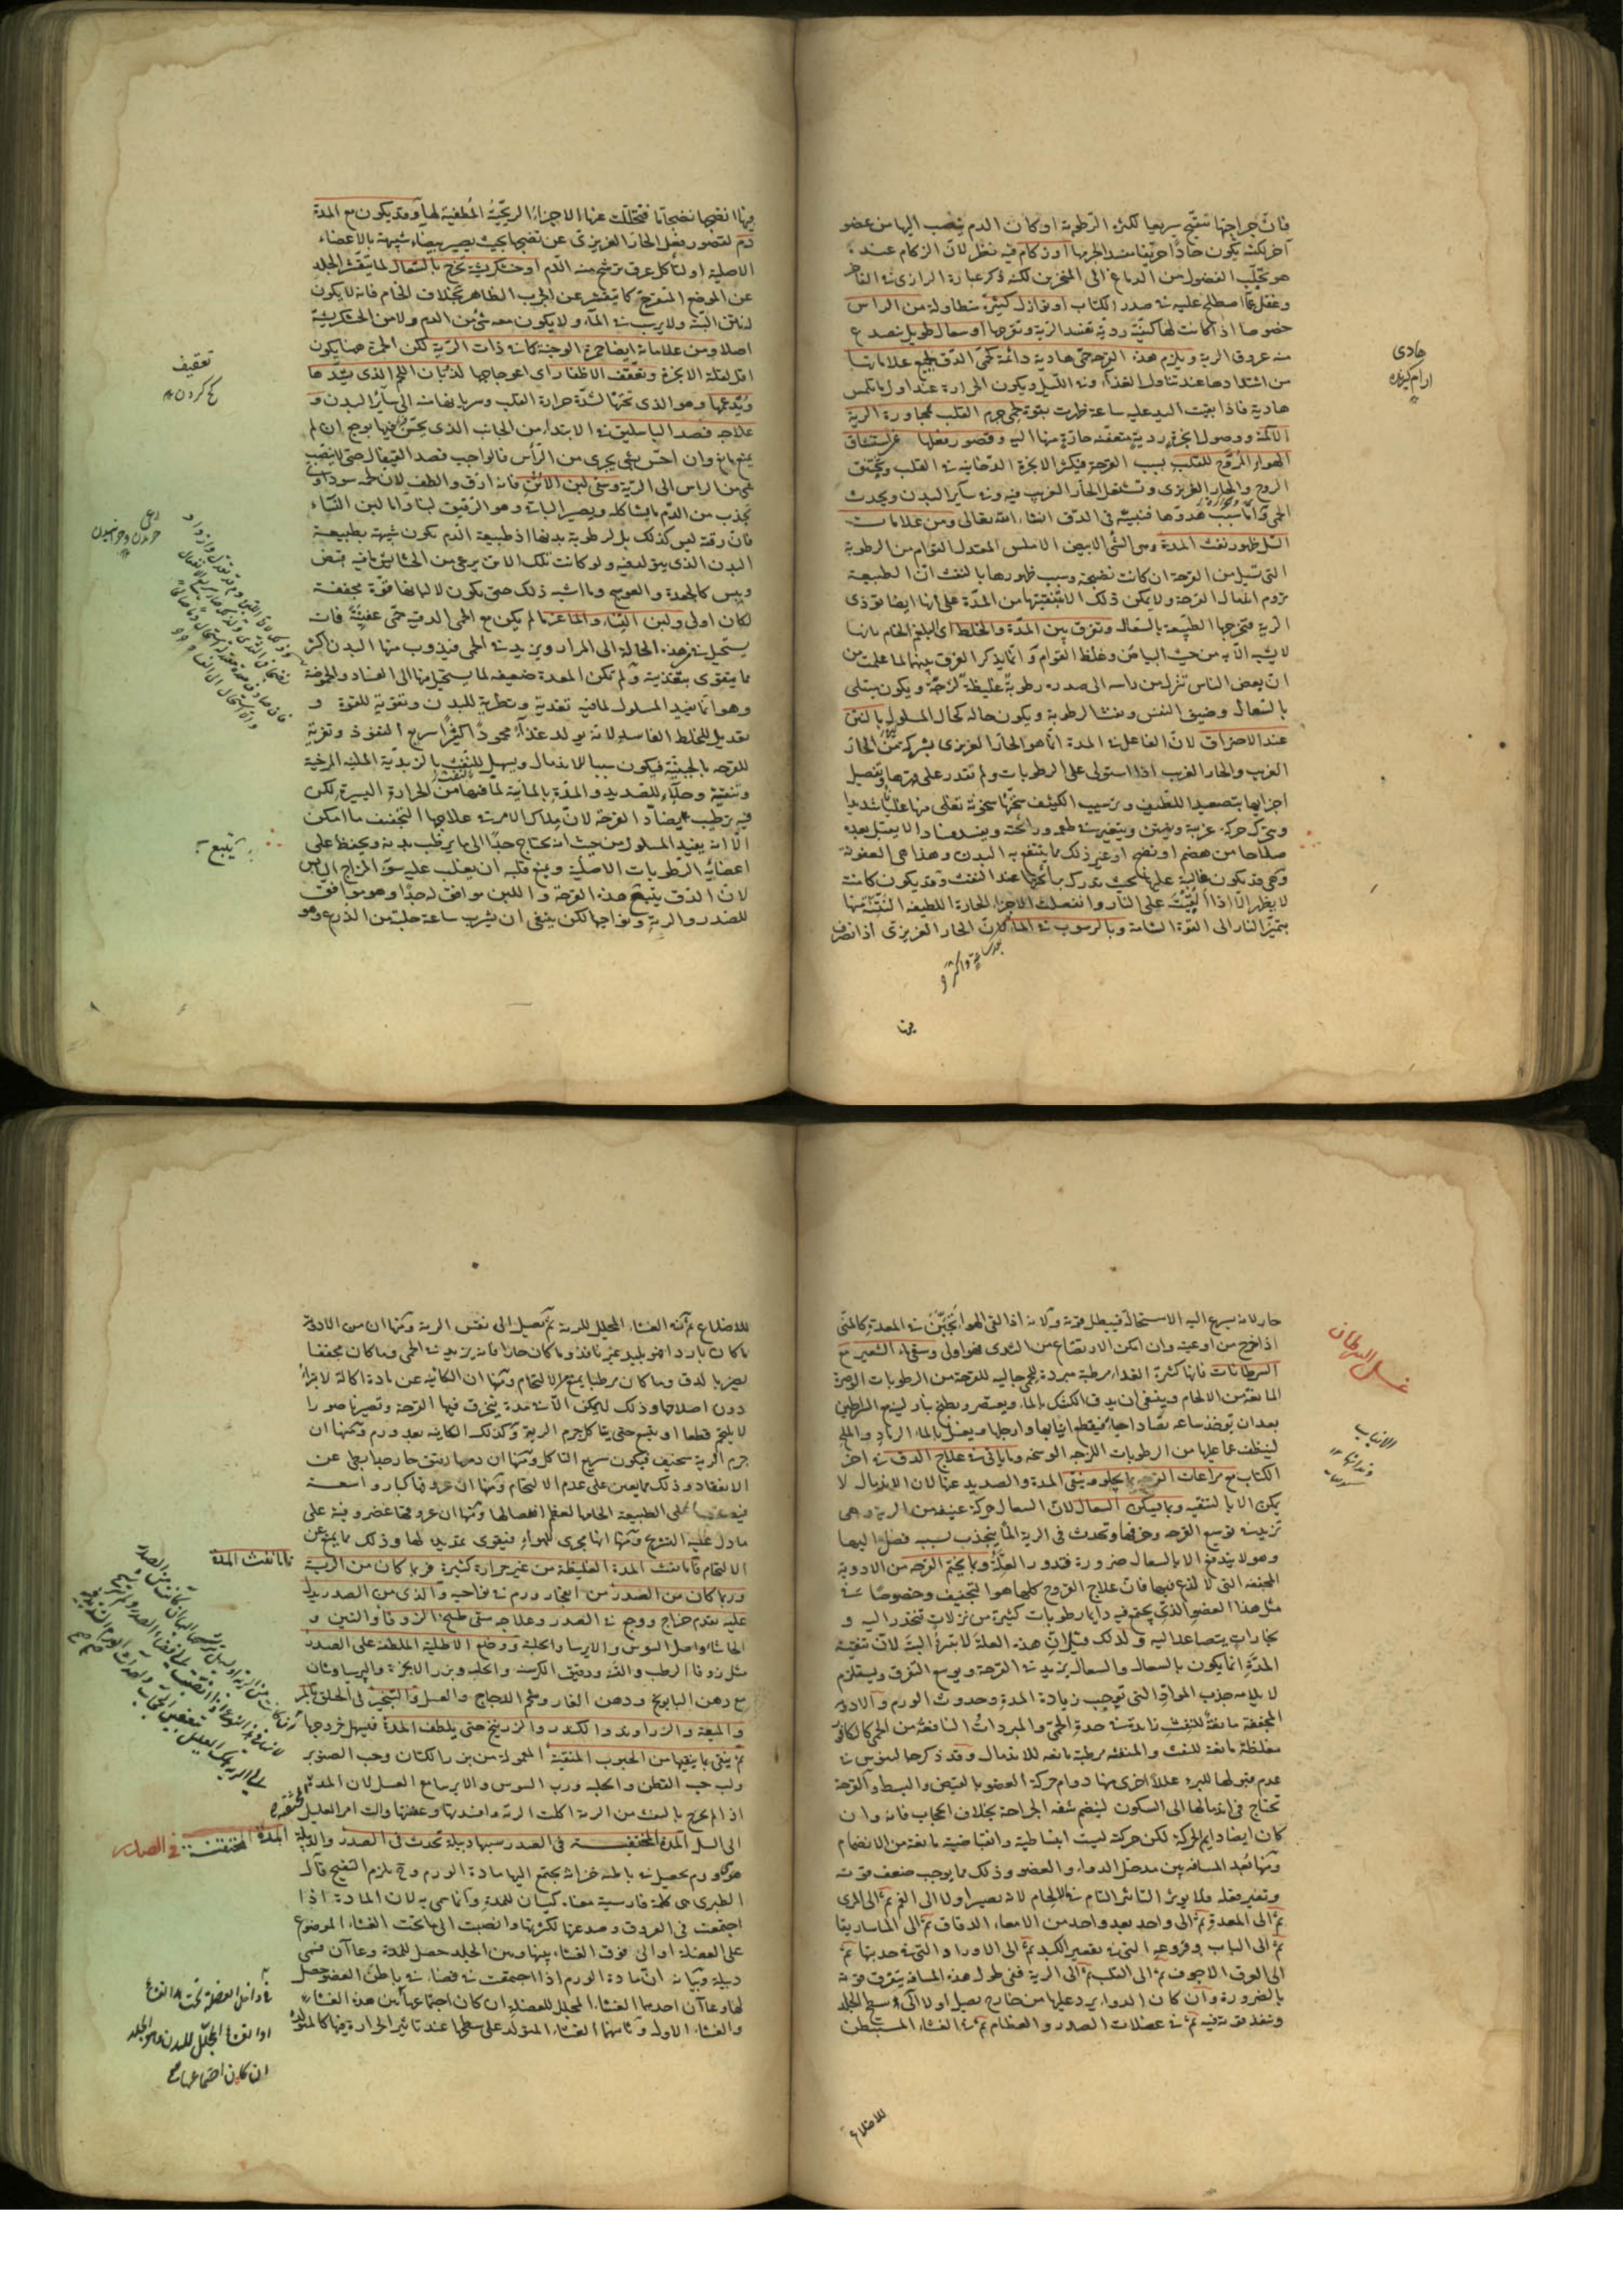 فان جراحتها تتقيح سريعا لكثرة الرطوبة او كان الدم ينصب اليها من عضو
آخر لكنه يكون حادا حريفا مفسدا لجرمها او زكام فيه نظر لان الزكام عنده
هو تحلب الفضول من الدماغ الى المنخرين لكنه ذكر عبارة الرازى فى الفاخر
وغفل عما اصطلح عليه فى صدر الكتاب او نوازل كثيرة متطاولة من الراس
خصوصا اذا كانت لها كيفية ردية تفسد الرية وتقرحها او سعال طويل تصدع
منه عروق الرية ويلزم هذه القرحة حمى هادية دائمة كحمى الدق لجميع علاماتها
من اشتدادها عند تناول الغذاء وفى الليل ويكون الحرارة عند اول ما يلمس
هادية فاذا بقيت اليد عليه ساعة ظهرت بقوة حمى جرم القلب لمجاورة الرية
الآلمة ووصول ابخرة ردية متعفنة حارة منها اليه وقصور فعلها عن استنشاق
الهواء المروح للقلب بسبب القرحة فيكثر الابخرة الدخانية فى القلب ويختنق
الروح والحار الغريزى وتشتعل الحار الغريب فيه وفى ساير البدن ويحدث
الحمى واما سبب هدوها فنبينه فى الدق انشاء الله تعالى ومن علامات
السل ظهور نفث المدة وهى الشئ الابيض الاملس المعتدل القوام من الرطوبة
التى تسيل من القرحة ان كانت نضيجة وسبب ظهورها بالنفث ان الطبيعة
تروم اندمال القرحة ولا يمكن ذلك الا بتنقيتها من المدة على انها ايضا تؤذى
الرية فتخرجها الطبيعة بالسعال وتفرق بين المدة والخلط اى البلغم الخام بانها
لا يشبه الا به من حيث البياض وغلظ القوام وانما يذكر الفرق بينهما لما علمت من
ان بعض الناس تنزل من راسه الى صدره رطوبة غليظة لزجة ويكون يبتلى
بالسعال وضيق النفس ونفث الرطوبة ويكون حاله كحال المسلول بالنتن
عند الاحتراق لان الفاعل فى المدة انما هو الحار الغريزى بشركة من الحار
الغريب والحار الغريب اذا استولى على الرطوبات ولم تقدر على قهرها وتفصيل
اجزايها بتصعيد اللطيف وترسيب الكثيف سخنها سخونة تغلى منها غليانا شديدا
ويتحرك حركة غريبة ويعفن ويتغير فى طعمه ورائحته ويفسد فسادا لا يقبل بعده
صلاحا من هضم او نضج او غير ذلك مما ينتفع به البدن وهذا هى العفونة
وهى قد يكون غالبة عليها بحيث تدرك رائحتها عند النفث وقد يكون كامنة
لا يظهر الا اذا القيت على النار وانفصلت الاجزاء الحارة اللطيفة النتنة منها
بتميز النار الى القوة الشامة وبالرسوب فى الماء لان الحار الغريزى اذا تصرف
هادى
ارام كيرنده
فيها انضجها نضجا تاما فتحللت عنها الاجزاء الريحية المطفية لها وقد يكون مع المدة
دم لقصور فعل الحار الغريزى عن نضجها بحيث يصير بيضاء شبيهة بالاعضاء
الاصلية او لتأكل عرق ترشح منه الدم او خشكريشة تخرج بالسعال لما يتقشر الجلد
عن الموضع المتقرح كما يتقشر عن الجرب الظاهر بخلاف الخام فانه لا يكون
له نتن البتة ولا يرسب فى الماء ولا يكون معه شئ من الدم ولا من الخشكريشة
اصلا ومن علاماته ايضا حمرة الوجنة كما فى ذات الرية لكن الحمرة هنا يكون
اقل لقلة الابخرة وتعقف الاظفار اى اعوجاجها لذوبان اللحم الذى يشدها
ويدعمها وهو الذى تحتها لشدة حرارة القلب وسريانها منه الى ساير البدن و
علاجه فصد الباسليق فى الابتداء من الجانب الذى يحس فيها بوجع ان لم
يمنع مانع وان احس بشئ يجرى من الراس فالواجب فصد القيفال حتى لا ينصب
شئ من الراس الى الرية وسقى لبن الاتن فانه ارق والطف لان لحمه سوداوى
يجذب من الدم ما يشاكله ويصير الباقى وهو الرقيق لبنا واما لبن النساء
فان رقته ليس كذلك بل لرطوبة بدنها اذ طبيعة الدم تكون شبيهة بطبيعة
البدن الذى يبقى فيه ولو كانت تلك الاتن يرعى من الحشايش ما فيه قبض
ويبس كالجعدة والعوسج وما اشبه ذلك حتى يكون لالبانها قوة مجففة
لكان اولى ولبن النساء والماعز ما لم يكن مع الحمى الدقية حمى عفنية فانه
يستحيل فى هذه الحالة الى المرار ويزيد فى الحمى فيذوب منها البدن اكثر
مما يتقوى بتغذيته ولم تكن المعدة ضعيفة لما يستحيل منها الى الفساد والحموضة
وهو انما يفيد المسلول لما فيه تغذية وترطيبة للبدن وتقوية للقوة و
تعديل للخلط الفاسد لانه يولد غذاء محمودا كثيرا سريع النفوذ وتغرية
للقرحة بالجبنية فيكون سببا للاندمال ويسهل للنفث بالزبدية الملينة المرخية
وتنقية وجلاء للصديد والمدة بالمائية لما فيها من الحرارة اليسيرة لكن
فيه ترطيب يضاد القرحة لان ملاك الامر فى علاجها التجفيف ما امكن
الا انه يفيد المسلول من حيث انه يحتاج جدا الى ما يرطب بدنه ويحفظ على
اعضائه الرطوبات الاصلية ويمنع قلبه ان يغلب عليه سوء المزاج اليابس
لان الدق يتبع هذه القرحة واللبن موافق له جدا وهو موافق
للصدر والرية ونواحيها لكن ينبغى ان يشرب ساعة حلبه من الضرع وهو
تعقيف
كج كردن
يتبع
حار لانه يسرع اليه الاستحالة فيبطل قوته ولانه اذا لقى الهواء تجبن فى المعدة كالمنى
اذا خرج من اوعيته وان امكن الارتضاع من الثدى فهو اولى وسقى ماء الشعير مع
السرطانات فانها كثيرة الغذاء مرطبة مبردة للحمى جالية للقرحة من الرطوبات الوضرة
المانعة من الالحام وينبغى ان يدق الكشك بالماء ويعصر ويطبخ بنار لينة مع السراطين
بعد ان توخذ ساعة تصاد احياء فيقطع انيابها وارجلها ويغسل بالماء الرماد والملح
لينظف عما عليها من الرطوبات اللزجة الوسخة وما ياتى فى علاج الدق فى اخر
الكتاب مع مراعات القرحة بما يجلو وينقى المدة والصديد عنها لان الاندمال لا
يمكن الا بالتنقية وبما يسكن السعال لان السعال حركة عنيفة من الرية وهى
تزيد فى توسيع القرحة وخرقها وتحدث فى الرية الما ينجذب بسببه فضل اليها
وهو لا يندفع الا بالسعال ضرورة فتدور العلة وبما يختم القرحة من الادوية
المجففة التى لا لذع فيها فان علاج القروح كلها هو التجفيف وخصوصا فى
مثل هذا العضو الذى يجتمع فيه دايما رطوبات كثيرة من نزلات تنحدر اليه و
بخارات يتصاعد اليه ولذلك قيل ان هذه العلة لا تبرأ البتة لان تنقية
المدة انما يكون بالسعال والسعال يزيد فى القرحة ويوسع التفرق ويستلزم
لا يلامه جذب المواد التى توجب زيادة المدة وحدوث الورم والادوية
المجففة مانعة للنفث زايدة فى حدة الحمى والمبردات النافعة من الحمى كالكافور
مغلظة مانعة للنفث والمنفثة مرطبة مانعة للاندمال وقد ذكر جالينوس فى
عدم قبولها للبرء عللا اخرى منها دوام حركة العضو بالقبض والبسط والقرحة
تحتاج فى اندمالها الى السكون لينضم شفه الجراحة بخلاف الحجاب فانه وان
كان ايضا دايم الحركة لكن حركته ليست انبساطية وانقباضية مانعة من الانضمام
ومنها بعد المسافة بين مدخل الدواء والعضو وذلك مما يوجب ضعف قوته
وتغير فعله فلا يوثر التاثير التام فى الالحام لانه يصير اولا الى الفم ثم الى المرى
ثم الى المعدة ثم الى واحد بعد واحد من الامعاء الدقاق ثم الى الماساريقا
ثم الى الباب وفروعه التى فى تقعير الكبد ثم الى الاوراد التى فى حدبتها ثم
الى العرق الاجوف ثم الى القلب ثم الى الرية ففى طول هذه المسافة يتفرق قوته
بالضرورة وان كان الدواء يرد عليها من خارج يصل اولا الى سطح الجلد
وتنفذ قوته فيه ثم فى عضلات الصدر والعظام ثم فى الغشاء المستبطن
للاضلاع
غسل السرطان
الانياب
دندانها
للاضلاع ثم فى الغشاء المجلل للرية ثم تصل الى نفس الرية ومنها ان من الادوية
ما كان باردا فهو بليد غير نافذ وما كان حارا فانه يزيد فى الحمى وما كان مجففا
يضر بالدق وما كان مرطبا يمنع من الالتحام ومنها ان الكائنة عن مادة اكالة لا تبرأ
دون اصلاحها وذلك لا يمكن الا فى مدة يتخرق فيها القرحة وتصير ناصورا
لا يلتحم قطعا او يتسع حتى يتاكل جرم الرية وكذلك الكاينة بعد ورم ومنها ان
جرم الرية سخيف فيكون سريع التاكل ومنها ان دمها رقيق حار صبا بطئ عن
الانعقاد وذلك مما يعين على عدم الالتحام ومنها ان عروقها كبار واسعة
فيصعب على الطبيعة الحامها لعظم انفصالها ومنها ان عروقها غضروفية على
ما دل عليه التشريح ومنها انها مجرى للهواء فيقوى تمديده لها وذلك مما يمنع عن
الالتحام فاما نفث المدة الغليظة من غير حرارة كثيرة فربما كان من الرية
وربما كان من الصدر من انفجار ورم فى نواحيه والذى من الصدر يدل
عليه تقدم خراج ووجع فى الصدر وعلاجه سقى طبيخ الزوفا والتين و
الحاشا واصل السوس والايرسا والحلبة ووضع الاطلية الملطفة على الصدر
مثل زوفا الرطب والقنه ودقيق الكرسنة والحلبه وبزر الانجرة والبرسياوشان
مع دهن البابونج ودهن الغار وشحم الدجاج والعسل والتبخير فى الحلق بالبر
والميعة والزراوند والكندر والزرنيخ حتى يلطف المدة فيسهل خروجها
ثم ينقى بما ينقيها من الحبوب المنقية المعمولة من بزر الكتان وحب الصنوبر
ولب حب القطن والحلبة ورب السوس والايرسا مع العسل لان المدة
اذا لم يخرج بالنفث من الرية اكلت الرية وافسدتها وعفنتها وآلت امر العليل
الى السل المدة المحتقنة فى الصدر سببها دبيلة تحدث فى الصدر والدبيلة
هو ورم يحصل فى باطنه خزانة يجتمع اليها مادة الورم وح يلزم التفتح قال
الطبرى هى كلمة فارسية معناه كيسان للمدة وانما سمى به لان المادة اذا
اجتمعت فى العروق وصدعتها لكثرتها وانصبت الى ما تحت الغشاء الموضوع
على العضلة او الى فوق الغشاء بينها وبين الجلد حصل للمدة وعاآن فسمى
دبيلة وبيانه ان مادة الورم اذا اجتمعت فى فضاء فى باطن العضو حصل
لها وعاآن احدهما الغشاء المجلل للعضلة ان كان اجتماعها بين هذه الغشاء
والغشاء الاول وثانيهما الغشاء المتولد على سطحها عند تاثير الحرارة فيها كالمتولد
فاما نفث المدة
المدة المحتقنة فى الصدر
فى داخل العضلة تحت هذا الغشاء
او الغشاء المجلل للبدن وهو الجلد
ان كان اجتماعها